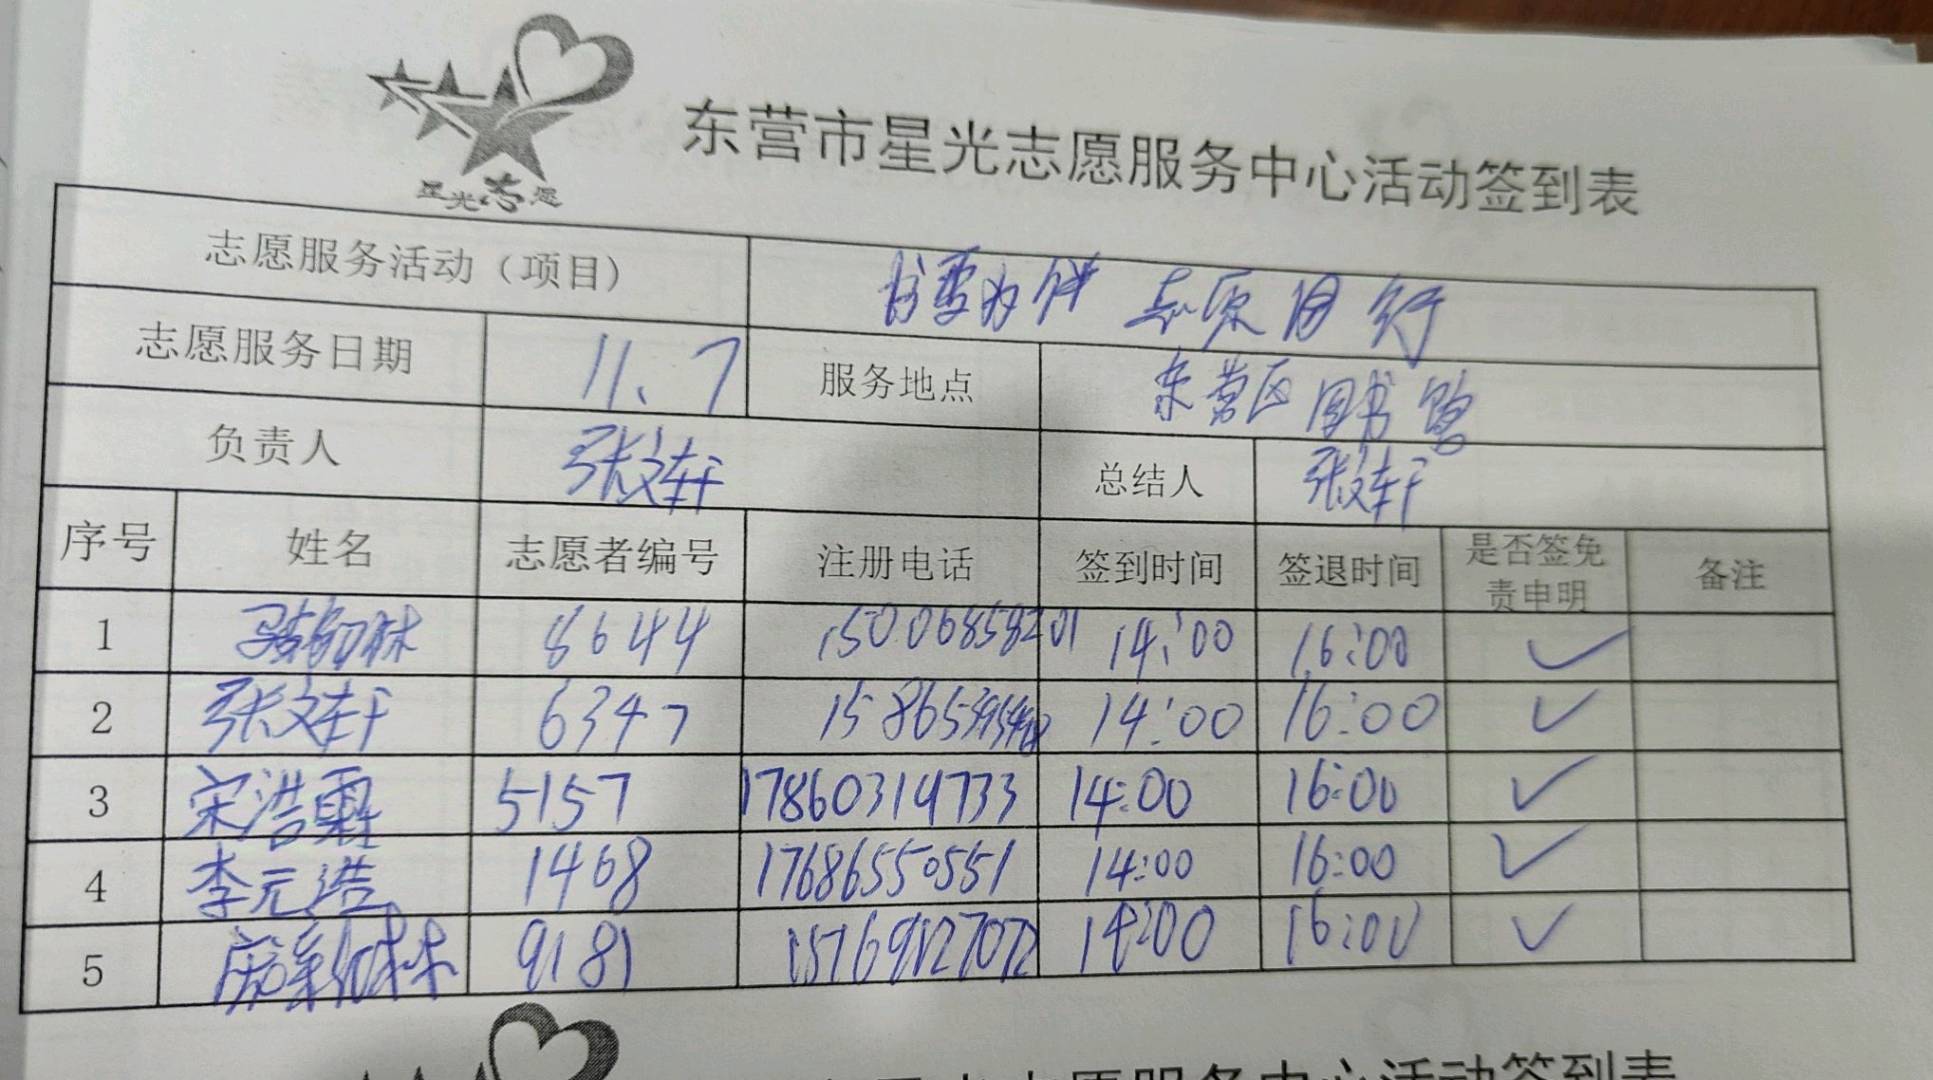 星光志愿
东营市星光志愿服务中心活动签到表
志愿服务活动（项目） 书香为伴 志愿同行
志愿服务日期 11、7 服务地点 东营区图书馆
负责人 张文轩 总结人 张文轩
序号 姓名 志愿者编号 注册电话 签到时间 签退时间 是否签免责申明 备注
1 8644 15006858201 14:00 16:00 ✓
2 张文轩 6347 14:00 16:00 ✓
3 宋浩 5157 17860314733 14:00 16:00 ✓
4 李元浩 1468 17686550551 14:00 16:00 ✓
5 9181 14:00 16:00 ✓
志愿服务中心活动签到表